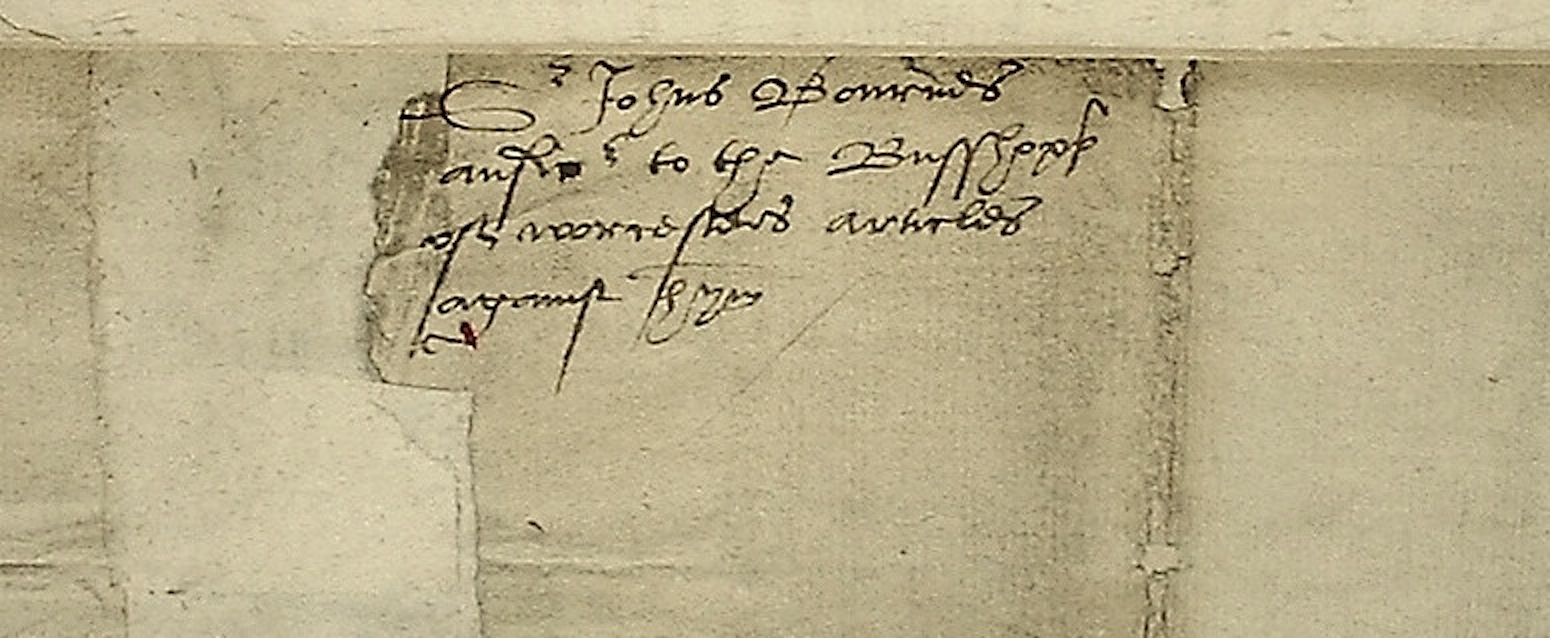 Sr Johns Bournes
answr to the Busshopps
off worcesters articles
against hym